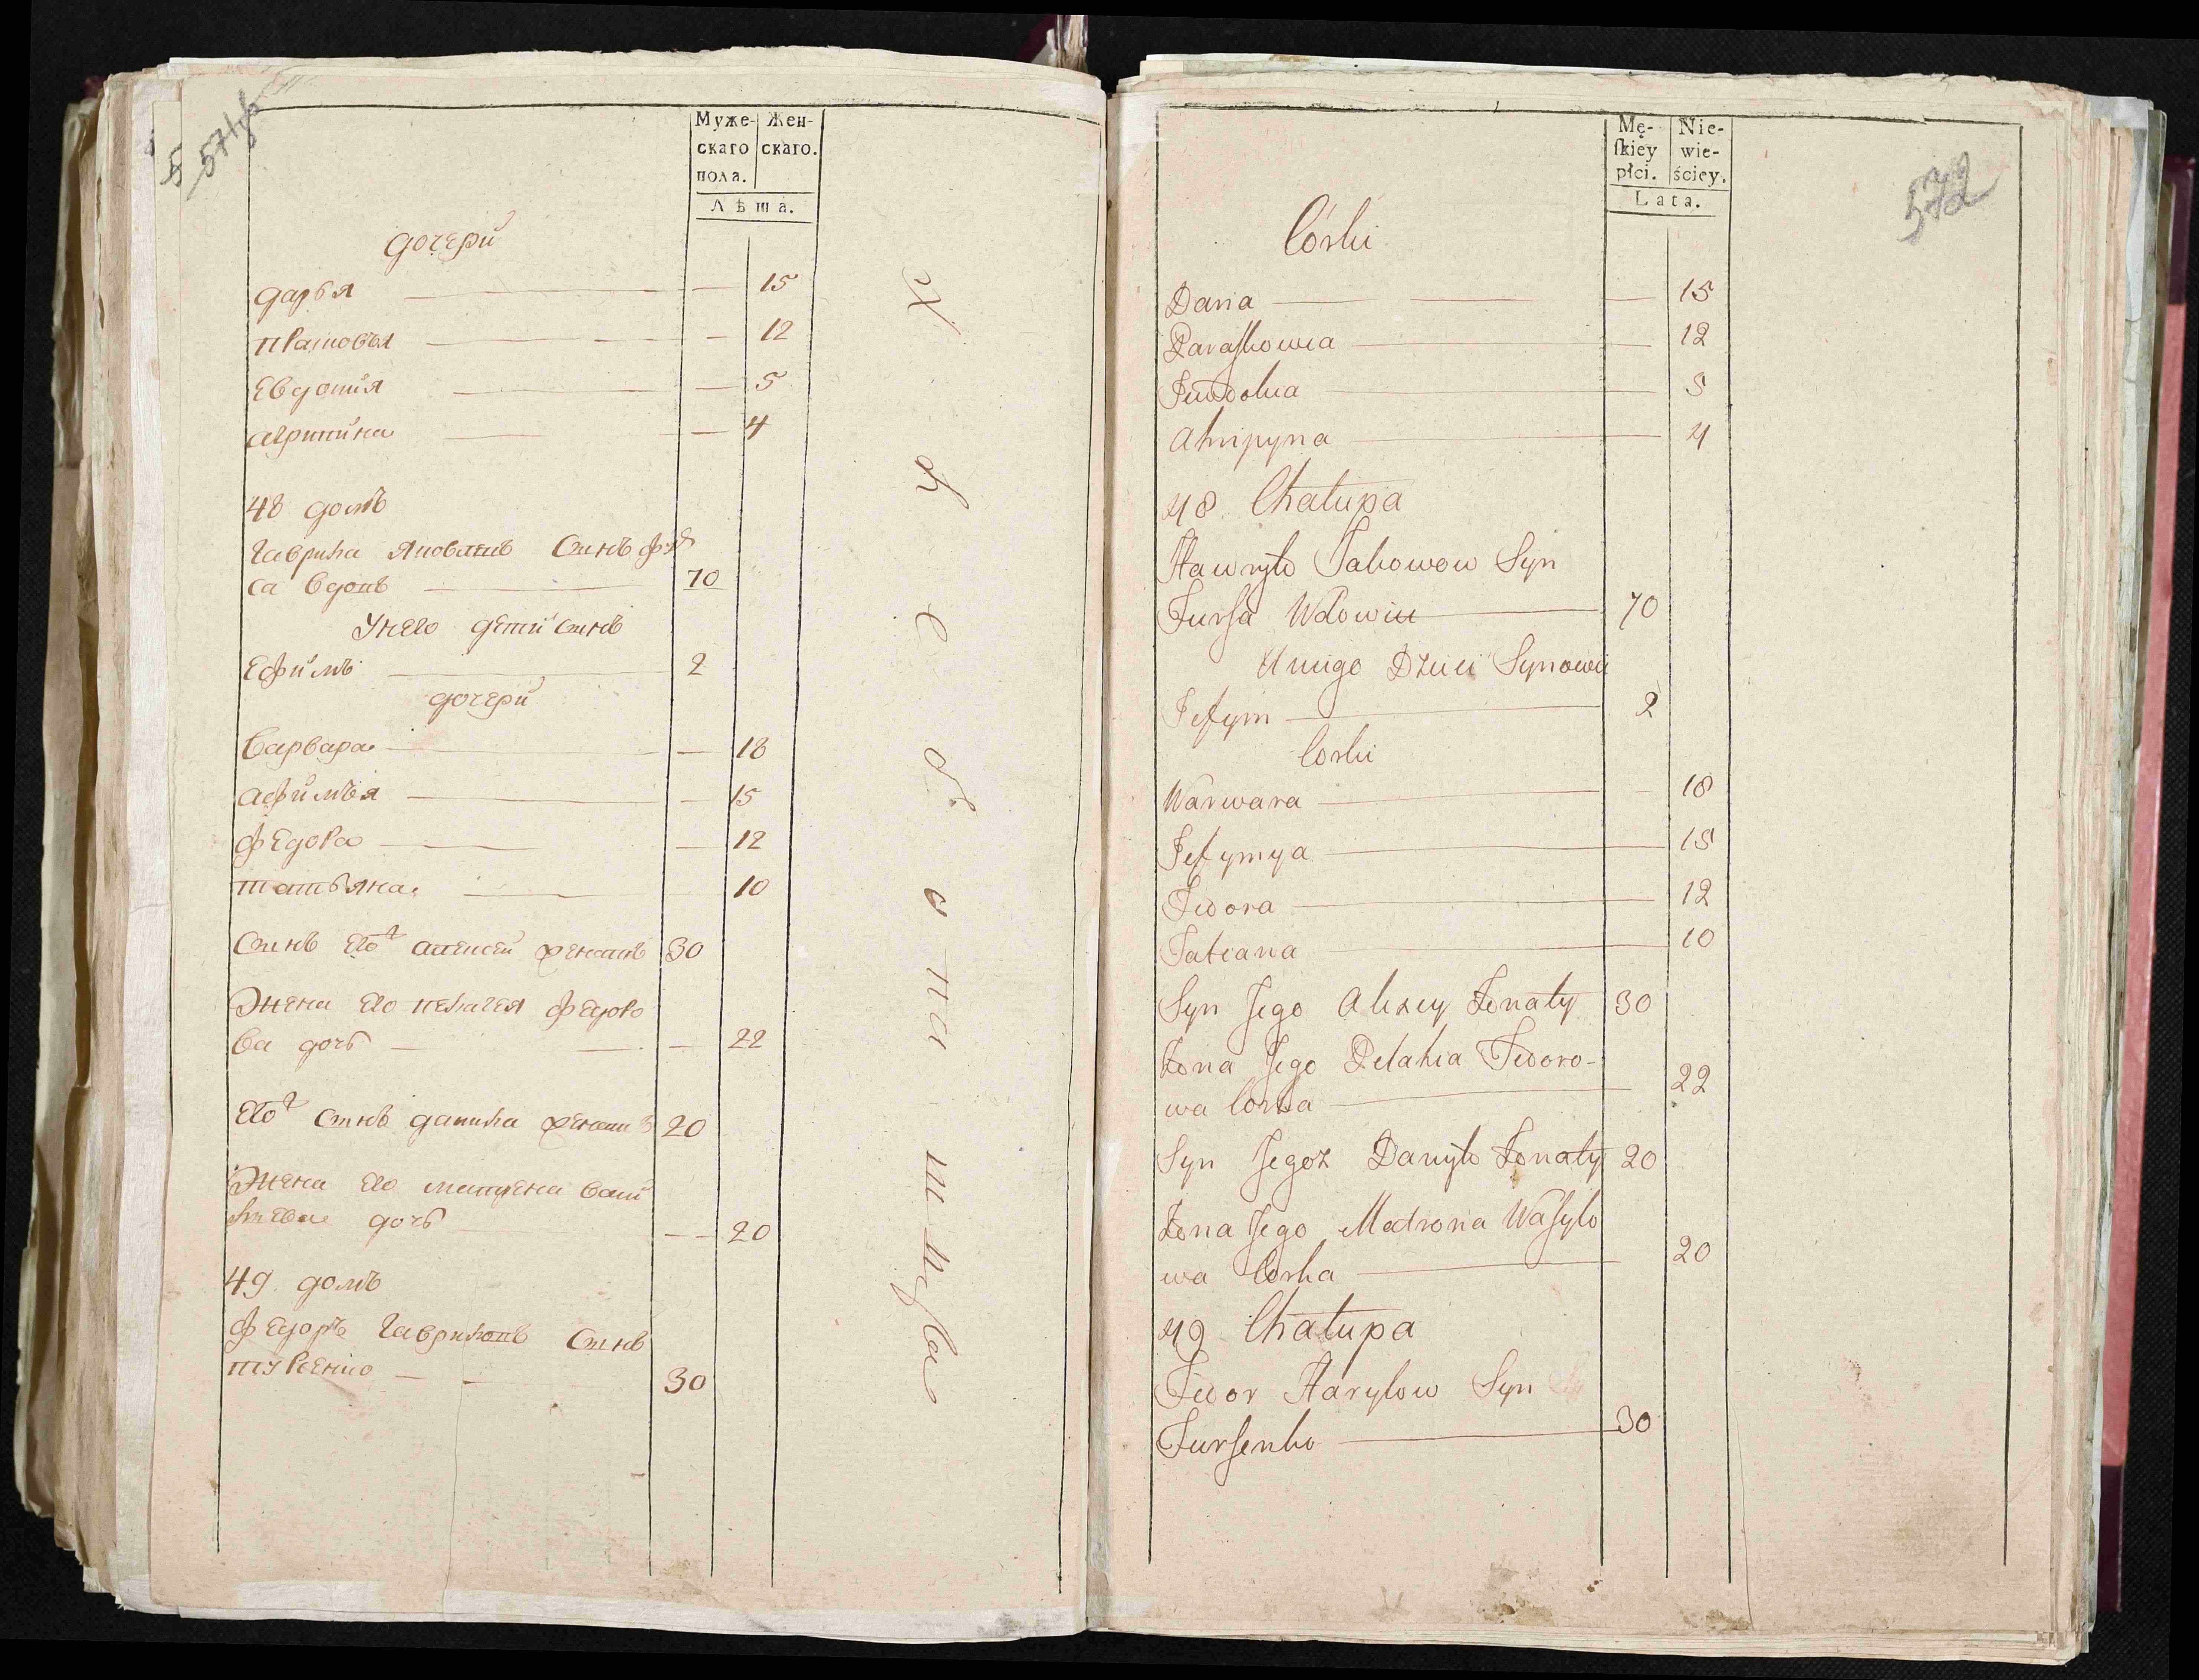 571об
Муже- Жен-
скаго скаго.
пола.
Лѣта.
дочери
дарья — 15
прасковья — 12
Евдокия — 5
агрипина — 4
48 домъ
Гаврила яковлевъ Сынъ фур
са вдовъ — 70
У него дети сынъ
Ефимъ — 2
дочери
Варвара — 18
афимья — 15
федора — 12
татьяна — 10
Сынъ его алексей женатъ 30
Жена его пелагея федоро
ва дочь — 22
его сынъ данила женатъ 20
Жена его матрена васи
льева дочь — 20
49 домъ
федоръ Гавриловъ Сынъ
фурсенко — 30
572
Mę- Nie-
ſkiey wie-
płci. ściey.
Lata.
Córki
Daria — 15
Paraskowia — 12
Jewdokia — 5
Ahripyna — 4
48 Chałupa
Hawryło Jakowow Syn
Fursa Wdowiec — 70
U niego Dzieci Synowie
Jefym — 2
Corki
Warwara — 18
Jefymya — 15
Fedora — 12
Tatiana — 10
Syn Jego Alexey Żonaty 30
Żona Jego Pelahia Fedoro-
wa Corka — 22
Syn Jegoż Danyło Żonaty 20
Żona Jego Matrona Wasylo
wa Corka — 20
49 Chałupa
Fedor Harylow Syn
Fursenko — 30